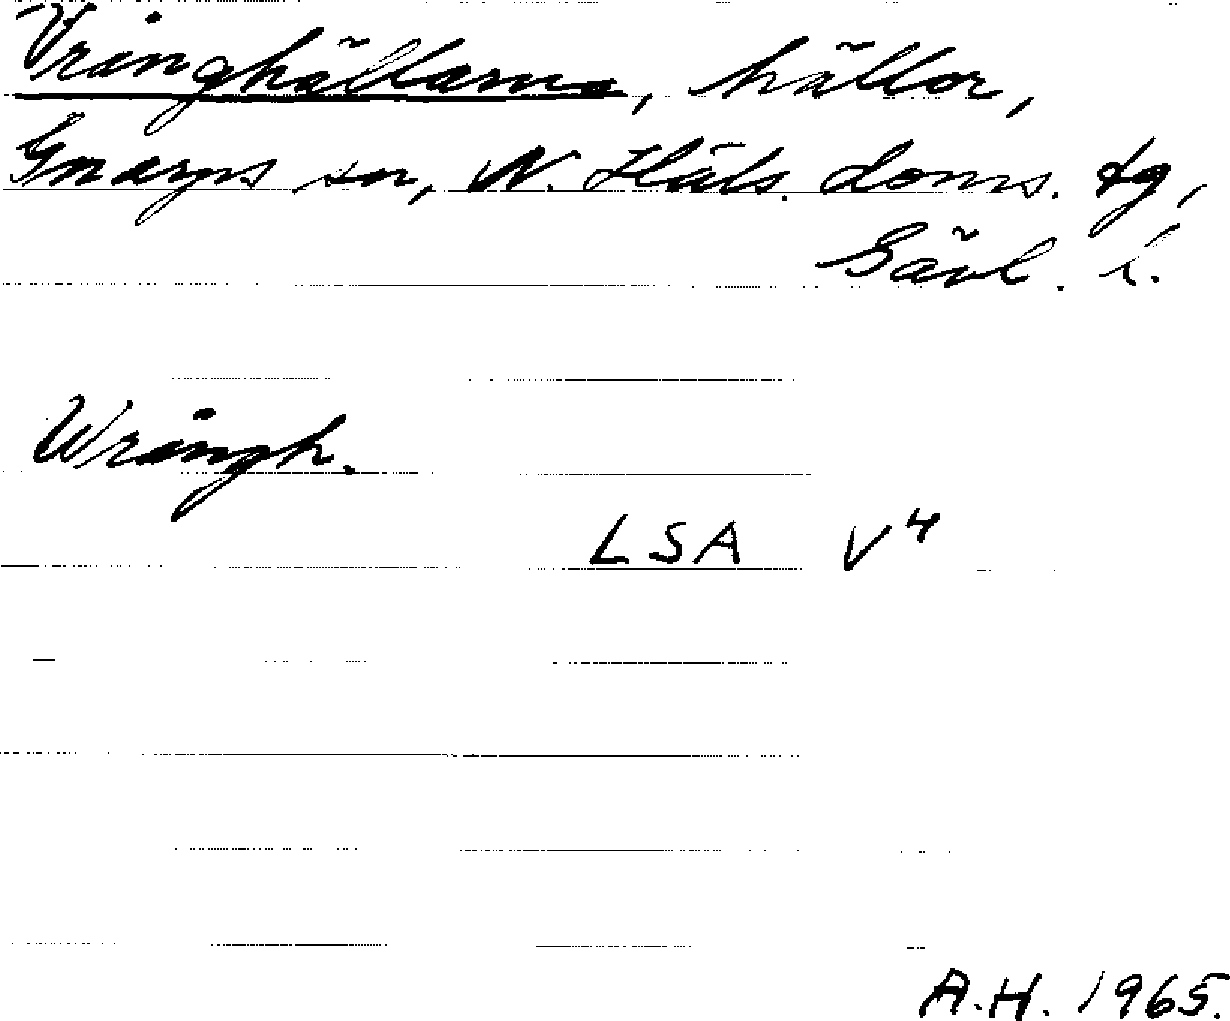 Vränghällarna, hällor,
Gnarps sn, N. Häls. doms. tg,
Gävl. l.
Wrångh.
LSA V4
A.H. 1965.